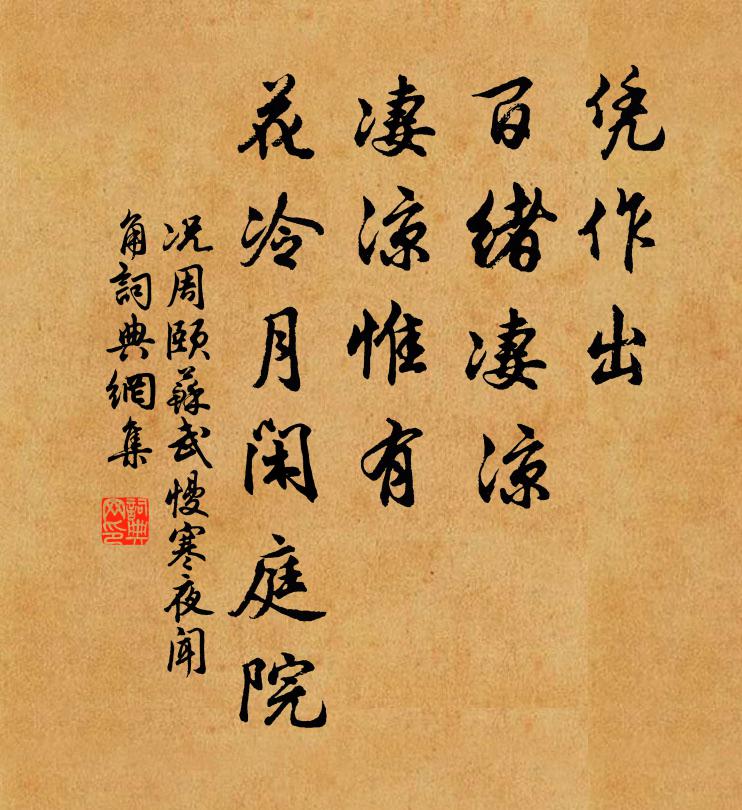 凭作出
百绪凄凉
凄凉惟有
花冷月闲庭院
况周颐蘇武慢寒夜闻
角詞典網集
詞典
网印